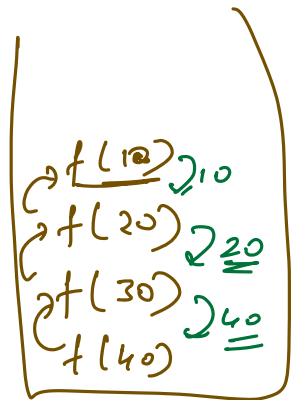 f(10) 10
f(20) 20
f(30) 40
f(40)